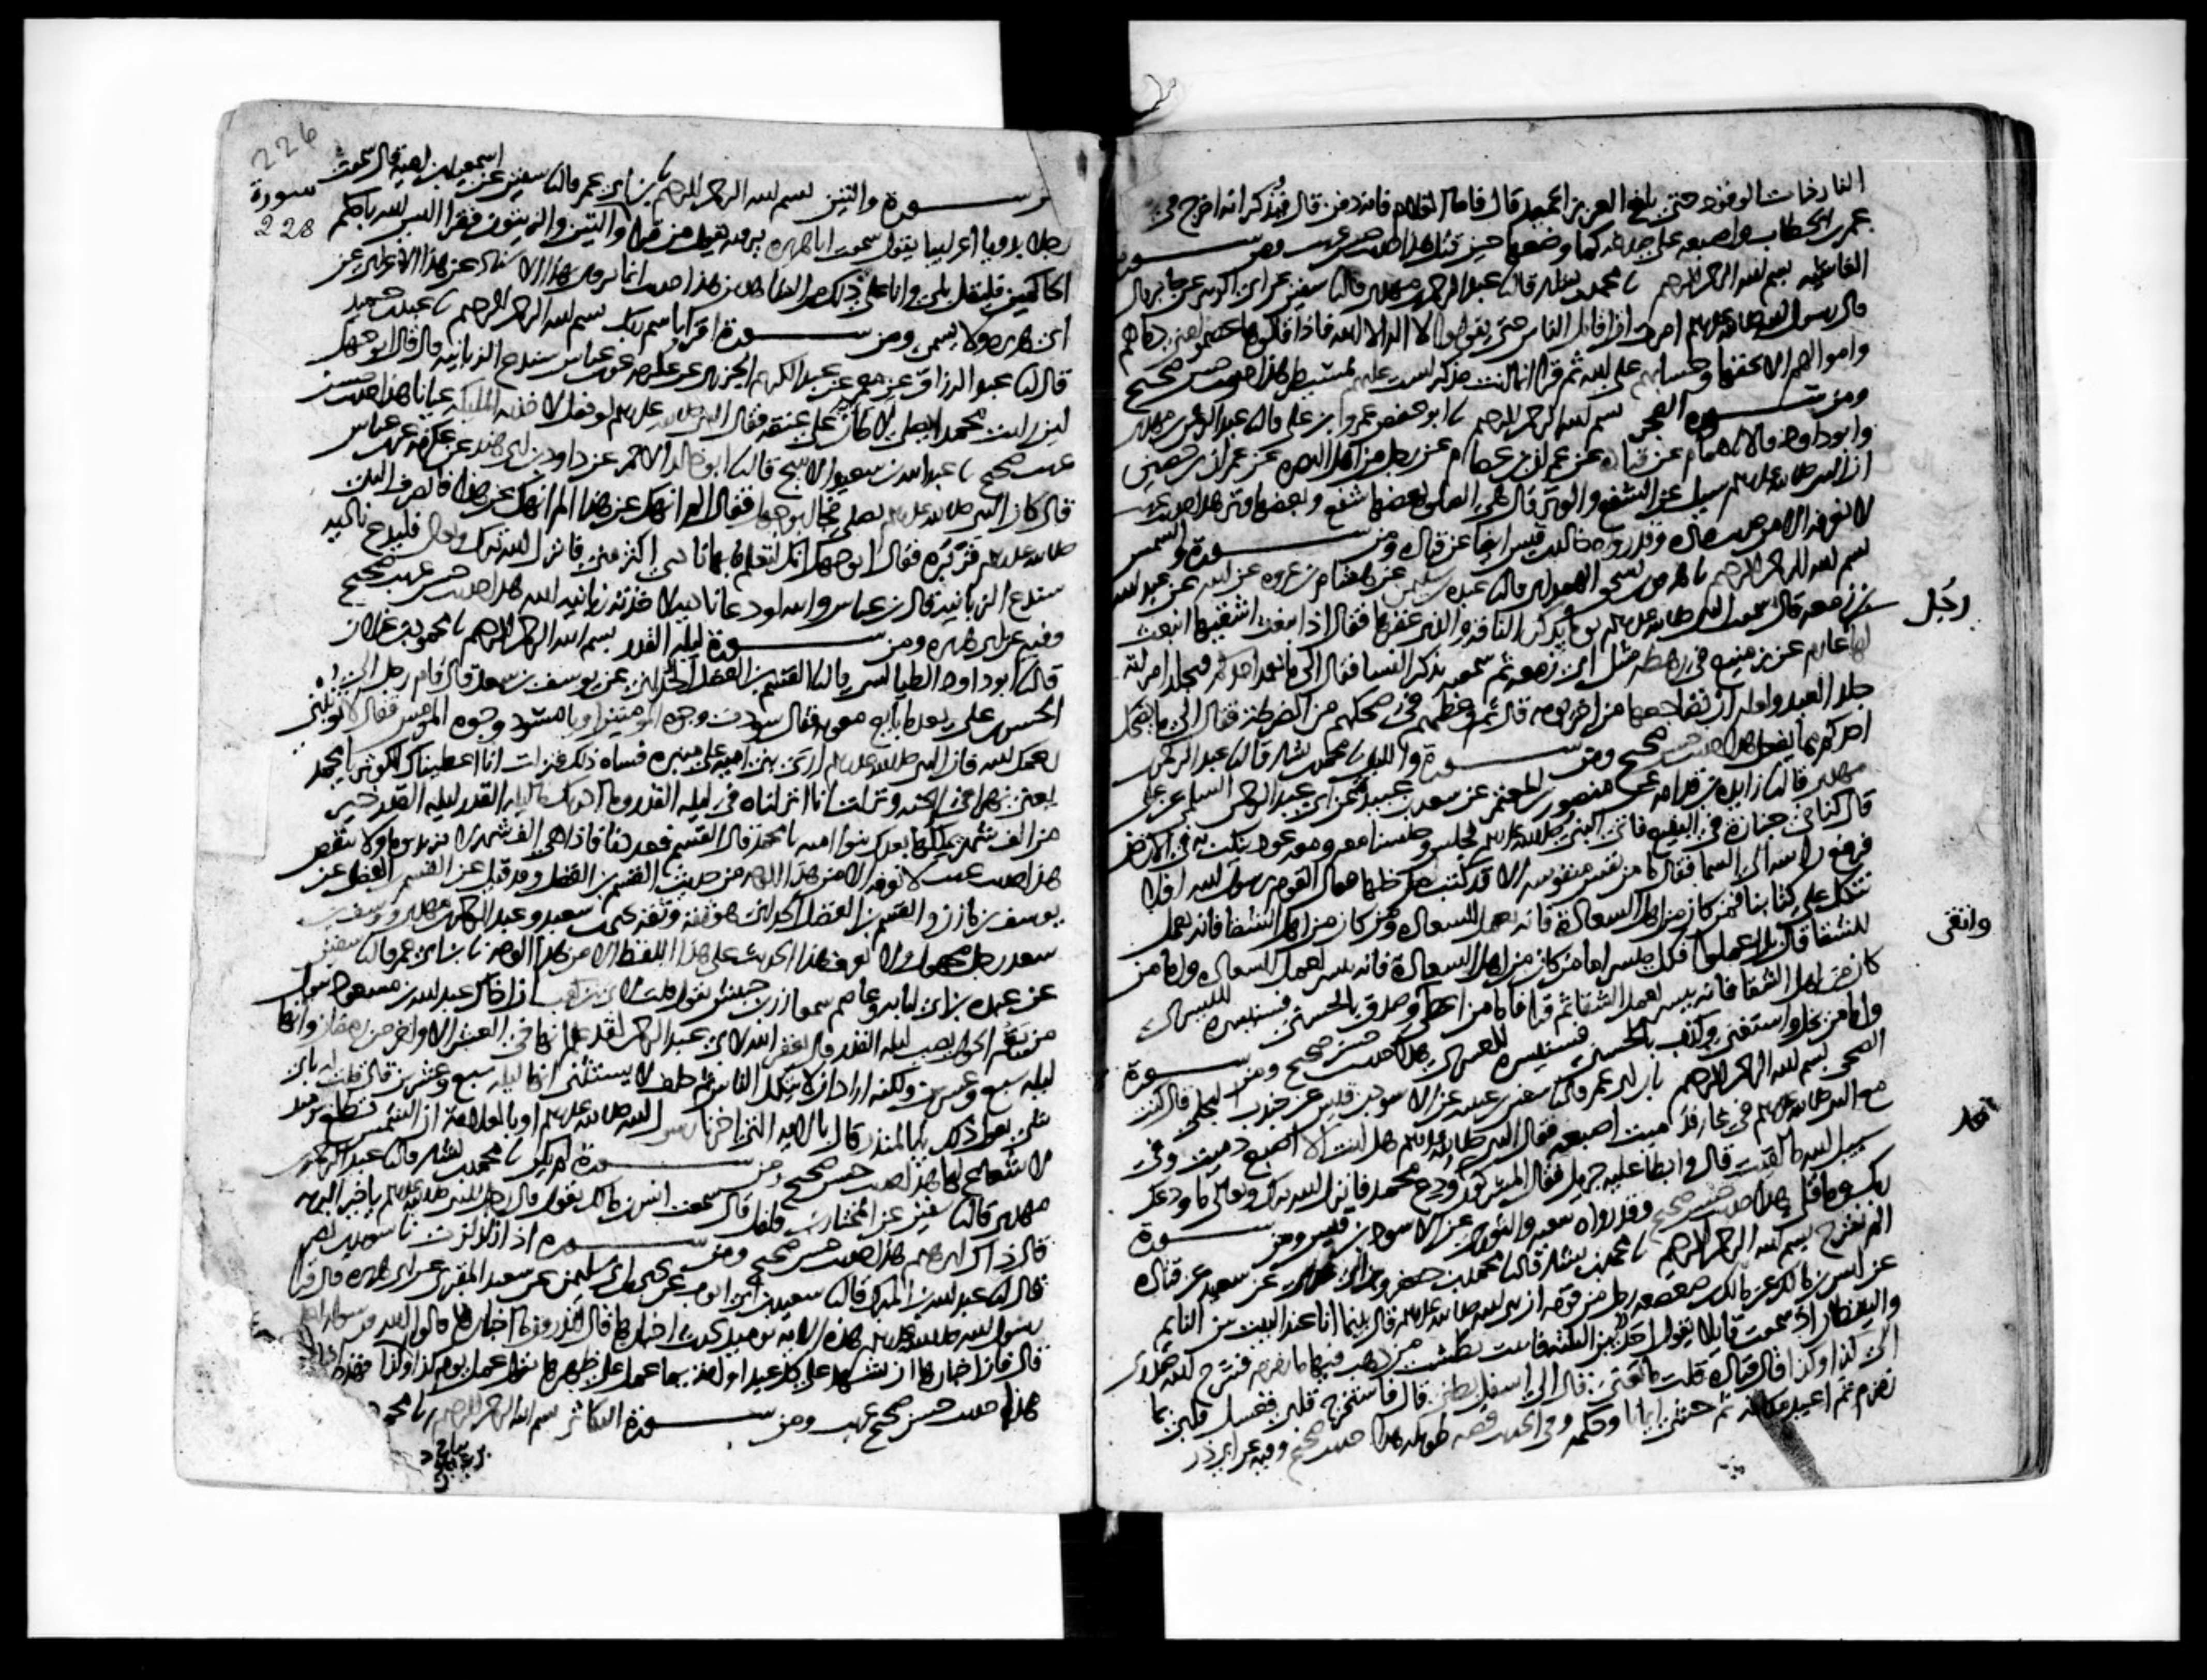 النار ذات الوقود حتى بلغ العزيز الحميد قال فاما الغلام فانه دفن قال فيذكر انه اخرج في
عمر بن الخطاب واصبعه على صدغه كما وضعها حين قتل هذا حديث حسن غريب ومن سورة
الغاشية بسم الله الرحمن الرحيم نا محمد بن بشار قال نا عبد الرحمن بن مهدي قال نا سفين عن ابي الزبير عن جابر قال
قال رسول الله صلى الله عليه وسلم امرت ان اقاتل الناس حتى يقولوا لا اله الا الله فاذا قالوها عصموا مني دماهم
واموالهم الا بحقها وحسابهم على الله ثم قرا انما انت مذكر لست عليهم بمسيطر هذا حديث حسن صحيح
ومن سورة الفجر بسم الله الرحمن الرحيم نا ابو حفص عمرو بن علي قال نا عبد الرحمن بن مهدي
وابو داود قالا نا همام عن قتادة عن عمران بن عصام عن رجل من اهل البصرة عن عمران بن حصين
ان النبي صلى الله عليه وسلم سيل عن الشفع والوتر قال هي الصلوة بعضها شفع وبعضها وتر هذا حديث غريب
لا نعرفه الا من حديث قتادة وقد رواه خالد بن قيس ايضا عن قتادة ومن سورة والشمس
بسم الله الرحمن الرحيم نا هرون بن اسحق الهمداني قال نا عبدة بن سليمن عن هشام بن عروة عن ابيه عن عبد الله
بن زمعة قال سمعت النبي صلى الله عليه وسلم يوما يذكر الناقة والذي عقرها فقال اذ انبعث اشقيها انبعث
رجل
لها عارم عزيز منيع في رهطه مثل ابي زمعة ثم سمعته يذكر النسا فقال الى ما يعمد احدكم فيجلد امراته
جلد العبد ولعله ان يضاجعها من اخر يومه قال ثم وعظهم في ضحكهم من الضرطة فقال الى ما يضحك
احدكم مما يفعل هذا حديث حسن صحيح ومن سورة والليل نا محمد بن بشار قال نا عبد الرحمن بن
مهدي قال نا زايدة بن قدامة عن منصور بن المعتمر عن سعد بن عبيدة عن ابي عبد الرحمن السلمي عن علي
قال كنا في جنازة في البقيع فاتى النبي صلى الله عليه وسلم فجلس وجلسنا معه ومعه عود ينكت به في الارض
فرفع راسه الى السما فقال ما من نفس منفوسة الا قد كتب مدخلها فقال القوم يرسول الله افلا
نتكل على كتابنا فمن كان من اهل السعادة فانه يعمل للسعادة ومن كان من اهل الشقا فانه يعمل
للشقا قال بل اعملوا فكل ميسر اما من كان من اهل السعادة فانه ييسر لعمل السعادة واما من
كان من اهل الشقا فانه ييسر لعمل الشقا ثم قرا فاما من اعطى وصدق بالحسنى فسنيسره لليسرى
واتقى
واما من بخل واستغنى وكذب بالحسنى فسنيسره للعسرى هذا حديث حسن صحيح ومن سورة
الضحى بسم الله الرحمن الرحيم نا ابن ابي عمر قال نا سفين بن عيينة عن الاسود بن قيس عن جندب البجلي قال كنت
مع النبي صلى الله عليه وسلم في غار فدميت اصبعه فقال النبي صلى الله عليه وسلم هل انت الا اصبع دميت وفي
سبيل الله ما لقيت قال وابطا عليه جبريل فقال المشركون قد ودع محمد فانزل الله تبرك وتعالى ما ودعك
ربك وما قلى هذا حديث حسن صحيح وقد رواه شعبة والثوري عن الاسود بن قيس ومن سورة
الم نشرح بسم الله الرحمن الرحيم نا محمد بن بشار قال نا محمد بن جعفر وابن ابي عدي عن سعيد عن قتادة
عن انس بن مالك عن مالك بن صعصعة رجل من قومه ان نبي الله صلى الله عليه وسلم قال بينما انا عند البيت بين النايم
واليقظان اذ سمعت قايلا يقول احد بين الثلثة فاتيت بطست من ذهب فيها ما زمزم فشرح الله صدري
الى كذا وكذا قال قتادة قلت ما يعني قال الى اسفل بطني قال فاستخرج قلبي فغسل قلبي بما
زمزم ثم اعيد مكانه ثم حشي ايمانا وحكمة وفي الحديث قصة طويلة هذا حديث صحيح وفيه عن ابي ذر
226
228
ومن سورة والتين بسم الله الرحمن الرحيم نا ابن ابي عمر قال نا سفين عن اسمعيل بن امية قال سمعت
رجلا بدويا اعرابيا يقول سمعت ابا هريرة يرويه يقول من قرا سورة والتين والزيتون فقرا اليس الله باحكم
الحاكمين فليقل بلى وانا على ذلك من الشاهدين هذا حديث انما يروى بهذا الاسناد عن هذا الاعرابي عن
ابي هريرة ولا يسمى ومن سورة اقرا باسم ربك بسم الله الرحمن الرحيم نا عبد بن حميد
قال نا عبد الرزاق عن معمر عن عبد الكريم الجزري عن عكرمة عن ابن عباس سندع الزبانية قال قال ابو جهل
لين رايت محمدا يصلي لاطان على عنقه فقال النبي صلى الله عليه وسلم لو فعل لاخذته المليكة عيانا هذا حديث حسن
غريب صحيح نا عبد الله بن سعيد الاشج قال نا ابو خالد الاحمر عن داود بن ابي هند عن عكرمة عن ابن عباس
قال كان النبي صلى الله عليه وسلم يصلي فجا ابو جهل فقال الم انهك عن هذا الم انهك عن هذا فانصرف النبي
صلى الله عليه وسلم فزبره فقال ابو جهل انك لتعلم ما بها ناد اكثر مني فانزل الله تبرك وتعالى فليدع ناديه
سندع الزبانية قال ابن عباس والله لو دعا ناديه لاخذته زبانية الله هذا حديث حسن غريب صحيح
وفيه عن ابي هريرة ومن سورة ليلة القدر بسم الله الرحمن الرحيم نا محمود بن غيلان
قال نا ابو داود الطيالسي قال نا القسم بن الفضل الحداني عن يوسف بن سعد قال قام رجل الى
الحسن بن علي بعد ما بايع معوية فقال سودت وجوه المومنين او يا مسود وجوه المومنين فقال لا تونبني
رحمك الله فان النبي صلى الله عليه وسلم اري بني امية على منبره فساه ذلك فنزلت انا اعطيناك الكوثر يا محمد
يعني نهرا في الجنة ونزلت انا انزلناه في ليلة القدر وما ادراك ما ليلة القدر ليلة القدر خير
من الف شهر يملكها بعدك بنو امية يا محمد قال القسم فعددناها فاذا هي الف شهر لا تزيد يوما ولا تنقص
هذا حديث غريب لا نعرفه الا من هذا الوجه من حديث القسم بن الفضل وقد قيل عن القسم بن الفضل عن
يوسف بن مازن والقسم بن الفضل الحداني هو ثقة وثقه يحيى بن سعيد وعبد الرحمن بن مهدي ويوسف بن
سعد رجل مجهول ولا نعرف هذا الحديث على هذا اللفظ الا من هذا الوجه نا ابن ابي عمر قال نا سفين
عن عبدة بن ابي لبابة وعاصم سمعا زر بن حبيش يقول قلت لابي بن كعب ان اخاك عبد الله بن مسعود يقول
من يقم الحول يصب ليلة القدر قال يغفر الله لابي عبد الرحمن لقد علم انها في العشر الاواخر من رمضان وانها
ليلة سبع وعشرين ولكنه اراد ان لا يتكل الناس ثم حلف لا يستثني انها ليلة سبع وعشرين قال قلت له باي
شي تقول ذلك يا ابا المنذر قال بالاية التي اخبرنا رسول الله صلى الله عليه وسلم او بالعلامة ان الشمس تطلع يوميذ
لا شعاع لها هذا حديث حسن صحيح ومن سورة لم يكن نا محمد بن بشار قال نا عبد الرحمن بن
مهدي قال نا سفين عن المختار بن فلفل قال سمعت انس بن مالك يقول قال رجل للنبي صلى الله عليه وسلم يا خير البرية
قال ذاك ابرهيم هذا حديث حسن صحيح ومن سورة اذا زلزلت نا سويد بن نصر
قال نا عبد الله بن المبارك قال نا سعيد بن ابي ايوب عن يحيى بن ابي سليمن عن سعيد المقبري عن ابي هريرة قال قرا
رسول الله صلى الله عليه وسلم هذه الاية يوميذ تحدث اخبارها قال اتدرون ما اخبارها قالوا الله ورسوله اعلم
قال فان اخبارها ان تشهد على كل عبد او امة بما عمل على ظهرها تقول عمل يوم كذا كذا وكذا فهذه
هذا حديث حسن صحيح غريب ومن سورة التكاثر بسم الله الرحمن الرحيم نا محمود